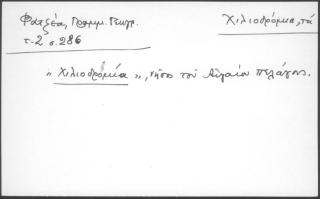 Φατζέα, Γραμμ. Γεωγρ.
τ. 2 σ. 286
Χιλιοδρόμια, τά
"Χιλιοδρομία", νῆσο τοῦ Αἰγαίου πελάγους.